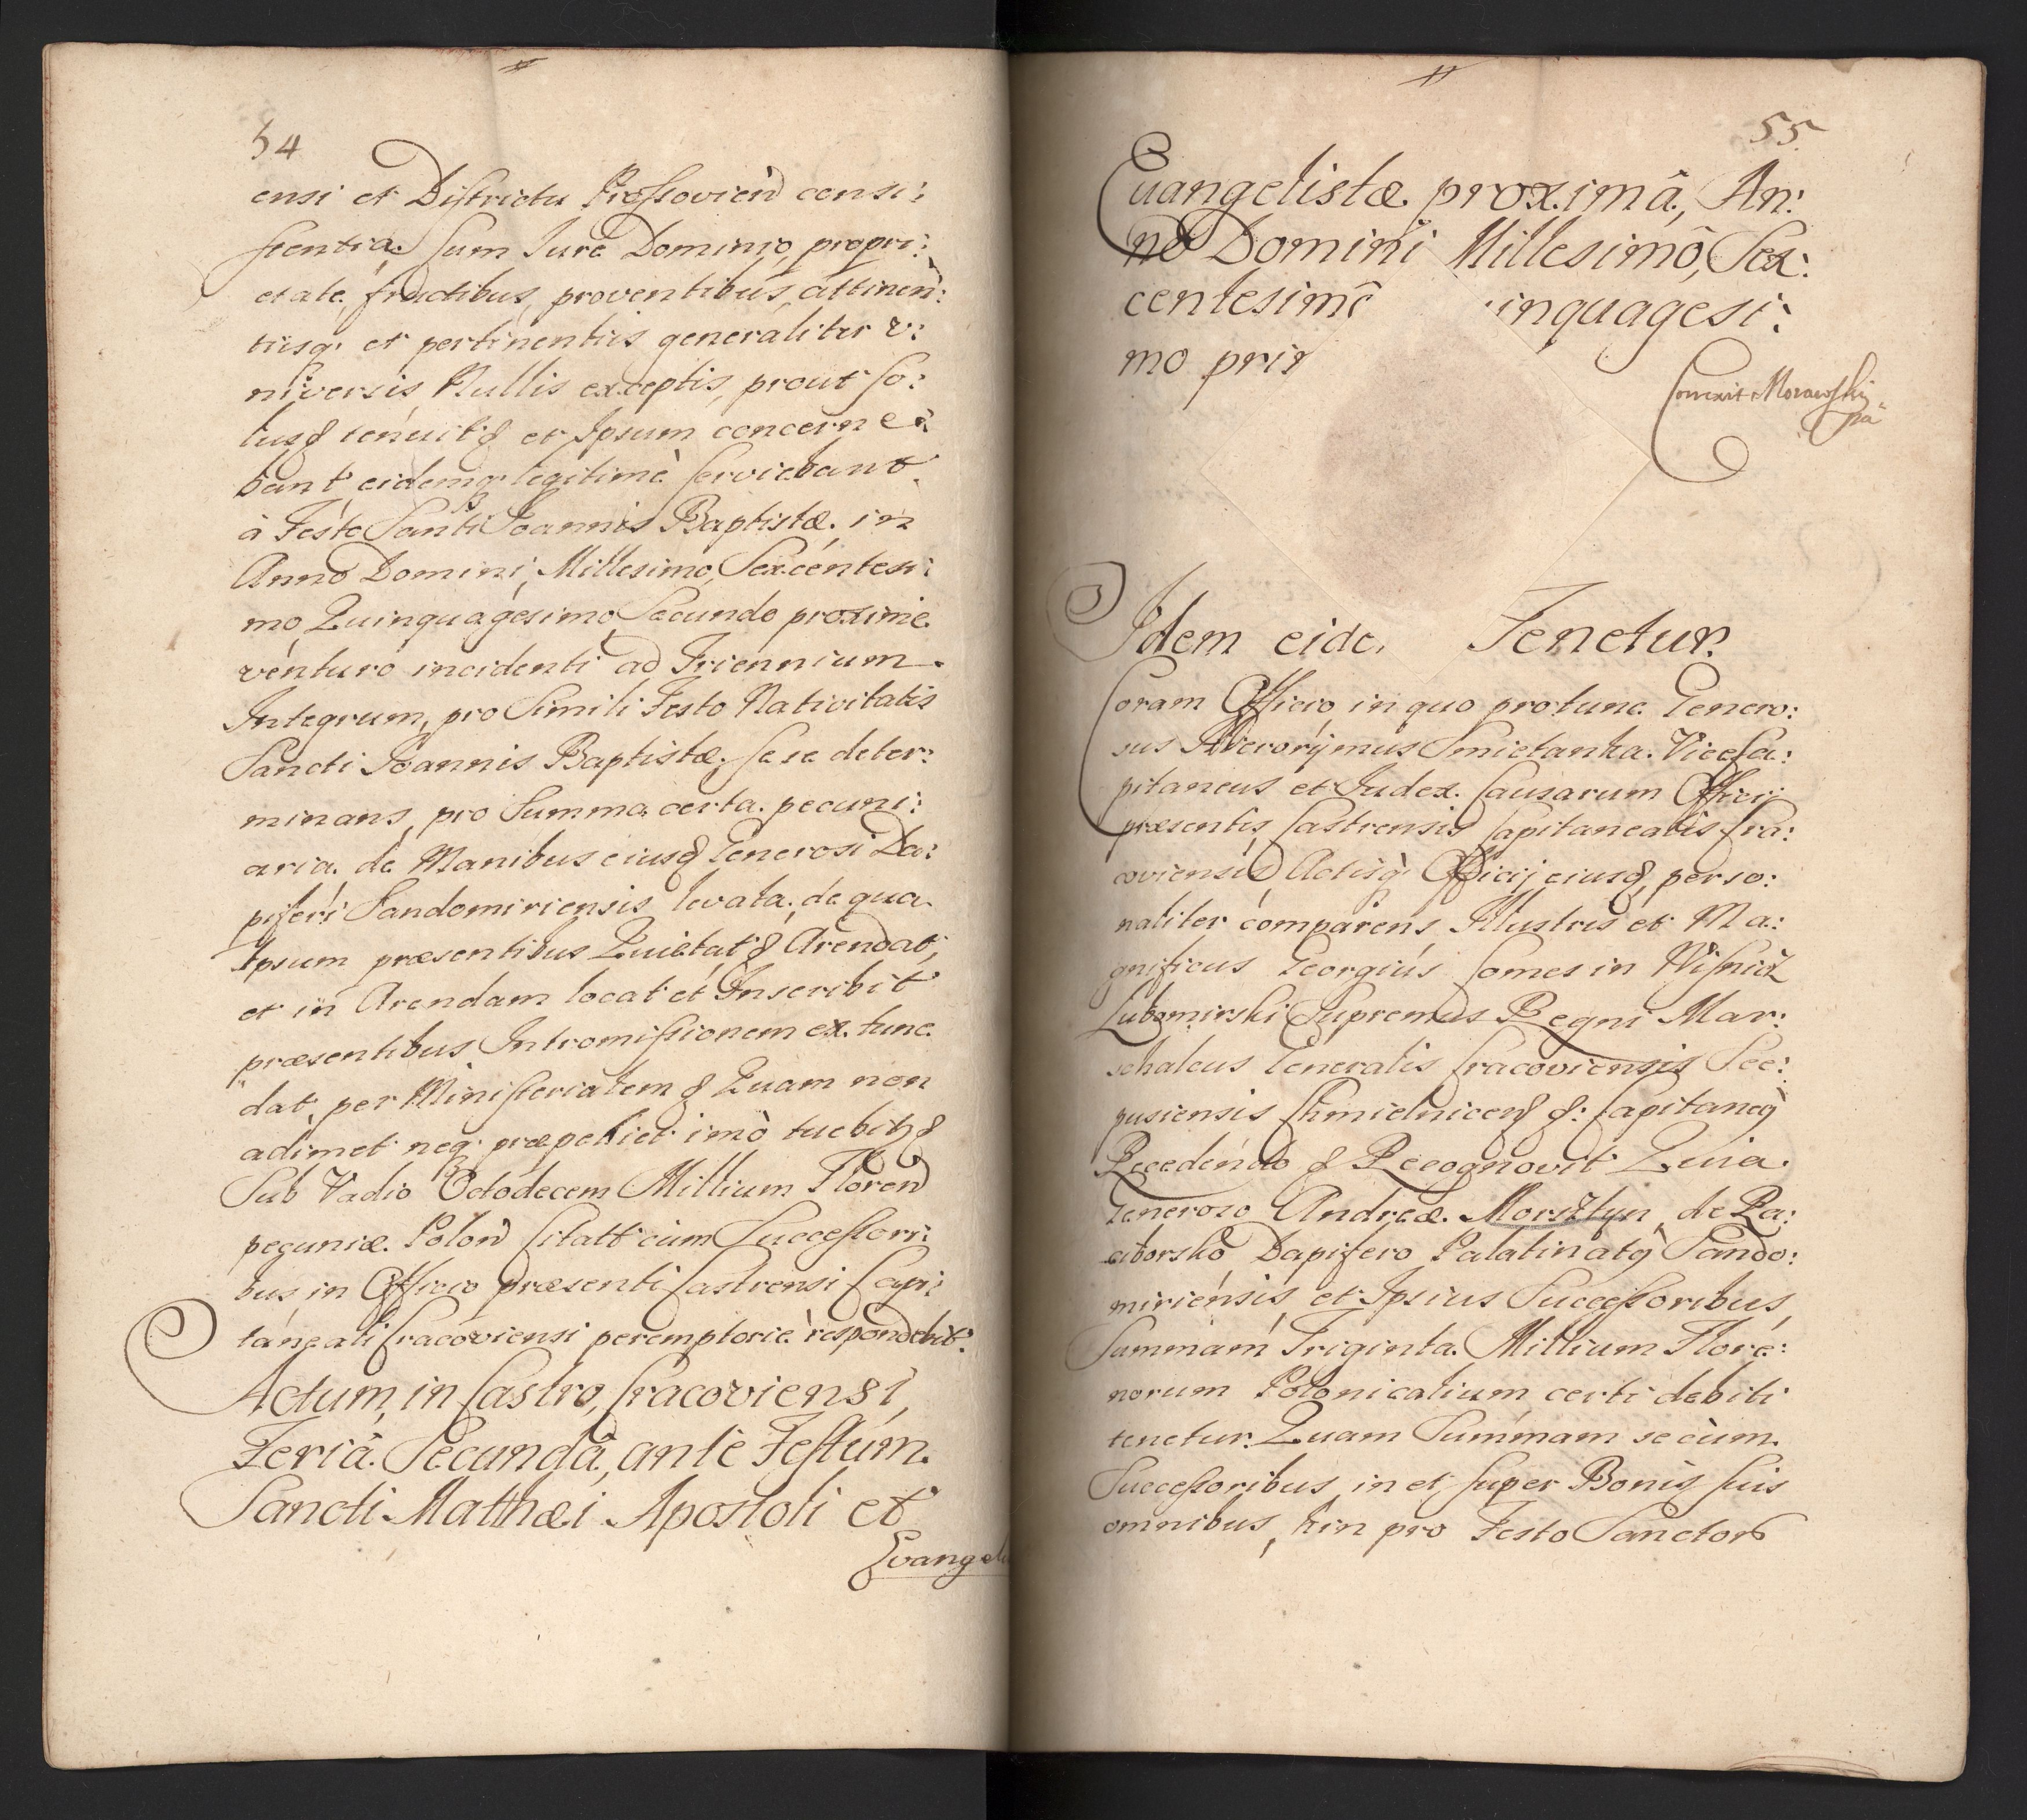 54
ensi et Districtu Piessovien̄ consi:
stentia. Cum Jure Dominio, propri:
etate, fructibus, proventibus, attinen:
tiisq. et pertinentiis generaliter v:
niversis Nullis exceptis, prout so:
lus tenuit et Ipsum concerne:
bant eidemq. legitimè serviebant
à Festo Sancti Joannis Baptistæ, in
Anno Domini, Millesimo, Sexcentesi:
mo, Quinquagesimo, Secundo proxime
venturo incidenti ad Triennium
Integrum, pro Simili Festo Nativitatis
Sancti Joannis Baptistæ, se se deter:
minans, pro Summa certa pecuni:
aria de Manibus eiusd Generosi Da:
piferi Sandomiriensis levata, de qua
Ipsum præsentibus Quietat & Arendat,
et in Arendam locat et Inscribit
præsentibus Intromissionem ex tunc
dat, per Ministerialem & Quam non
adimet neq. præpediet imò tuebit &
Sub Vadio Octodecem Millium Floren
pecuniæ Polon Citatt cum Successori:
bus in Officio præsenti Castrensi Capi:
taneali Cracoviensi peremptoriè respondebit.
Actum, in Castro, Cracoviensi,
Feriâ Secundâ, antè Festum
Sancti Matthæi Apostoli et
Evangeli
55.
Euangelistæ proximâ, An:
nô Domini Millesimô, Sex:
centesimô inquagesi:
mo pri
Correxit Morawski
pa
Idem eide Tenetur.
Coram Officio in quo protunc Genero:
sus Hieronymus Smietanka ViceCa:
pitaneus et Judex Causarum Officij
præsentis, Castrensis Capitanealis Cra:
coviensis Actisq. Officij eiusd perso:
naliter comparens Illustris et Ma:
gnificus Georgius Comes in Wisnicz
Lubomirski Supremus Regni Mar:
schalcus Generalis Cracoviensis Sce:
pusiensis Chmielnicens & Capitaneg
Recedendo & Recognovit Quia
Generoso Andreæ Morsztyn de Ra:
ciborsko Dapifero Palatinatg Sando:
miriensis, et Ipsius Successoribus,
Summam Triginta Millium Flore:
norum Polonicalium certi debiti
tenetur. Quam Summam se cùm
Successoribus in et super Bonis suis
omnibus, hin pro Festo Sanctor